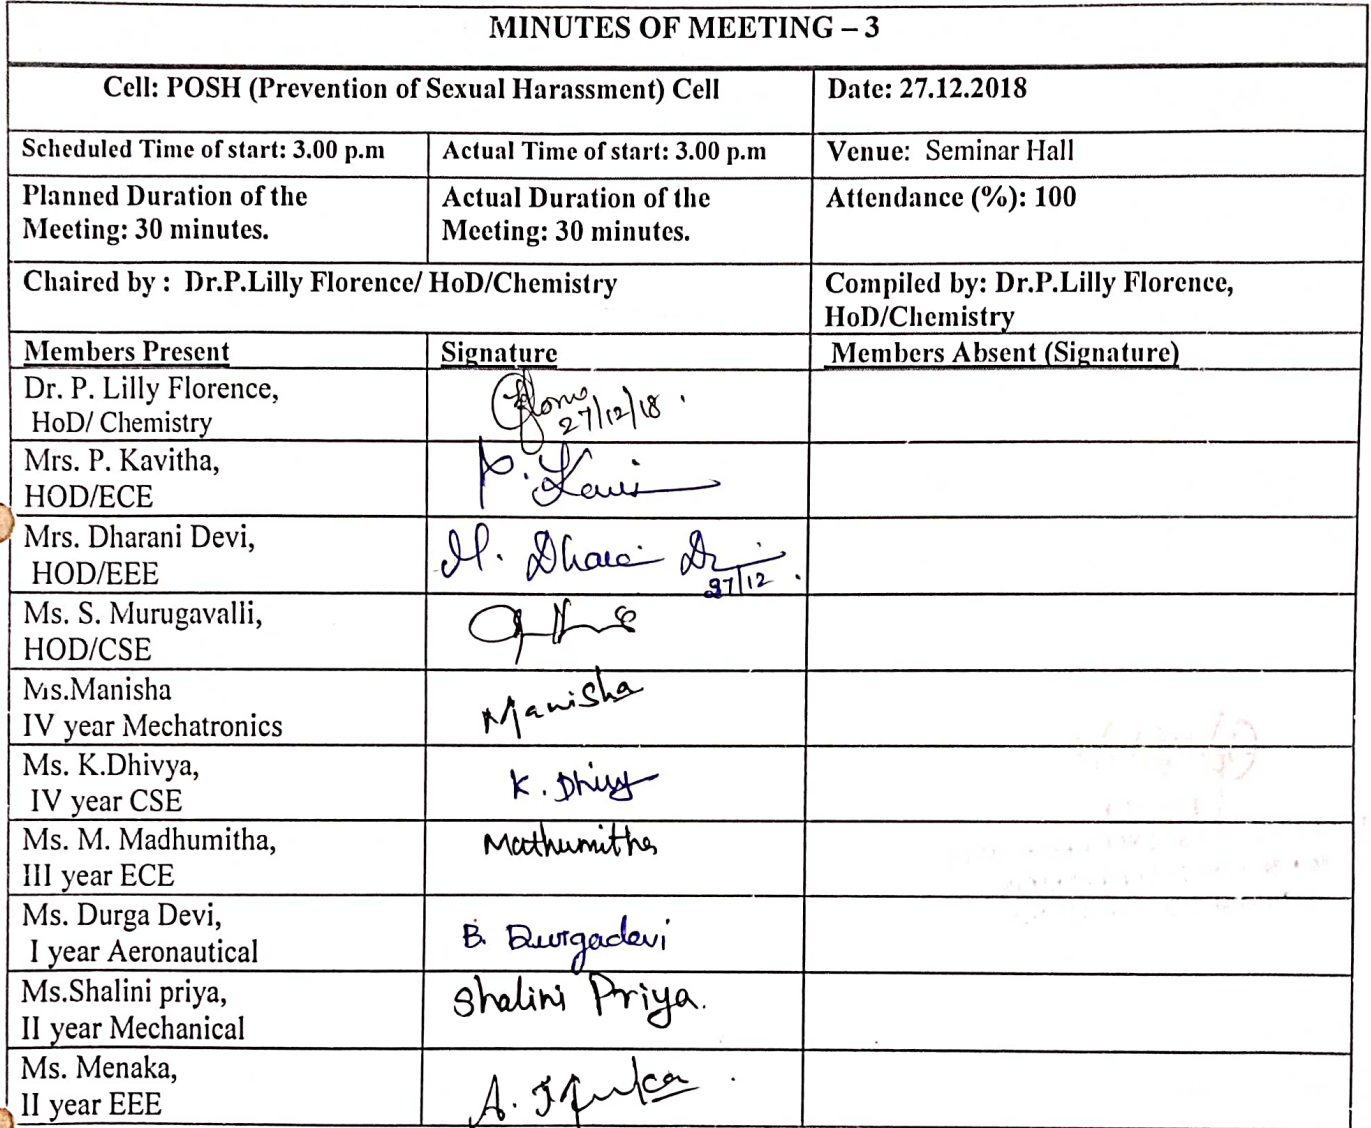 MINUTES OF MEETING – 3
Cell: POSH (Prevention of Sexual Harassment) Cell
Date: 27.12.2018
Scheduled Time of start: 3.00 p.m
Actual Time of start: 3.00 p.m
Venue: Seminar Hall
Planned Duration of the
Meeting: 30 minutes.
Actual Duration of the
Meeting: 30 minutes.
Attendance (%): 100
Chaired by : Dr.P.Lilly Florence/ HoD/Chemistry
Compiled by: Dr.P.Lilly Florence,
HoD/Chemistry
Members Present
Signature
Members Absent (Signature)
Dr. P. Lilly Florence,
HoD/ Chemistry
27/12/18
Mrs. P. Kavitha,
HOD/ECE
P.
Mrs. Dharani Devi,
HOD/EEE
27/12
Ms. S. Murugavalli,
HOD/CSE
Ms.Manisha
IV year Mechatronics
Manisha
Ms. K.Dhivya,
IV year CSE
K.
Ms. M. Madhumitha,
III year ECE
Mathumitha
Ms. Durga Devi,
I year Aeronautical
B. Durgadevi
Ms.Shalini priya,
II year Mechanical
Shalini Priya.
Ms. Menaka,
II year EEE
A.